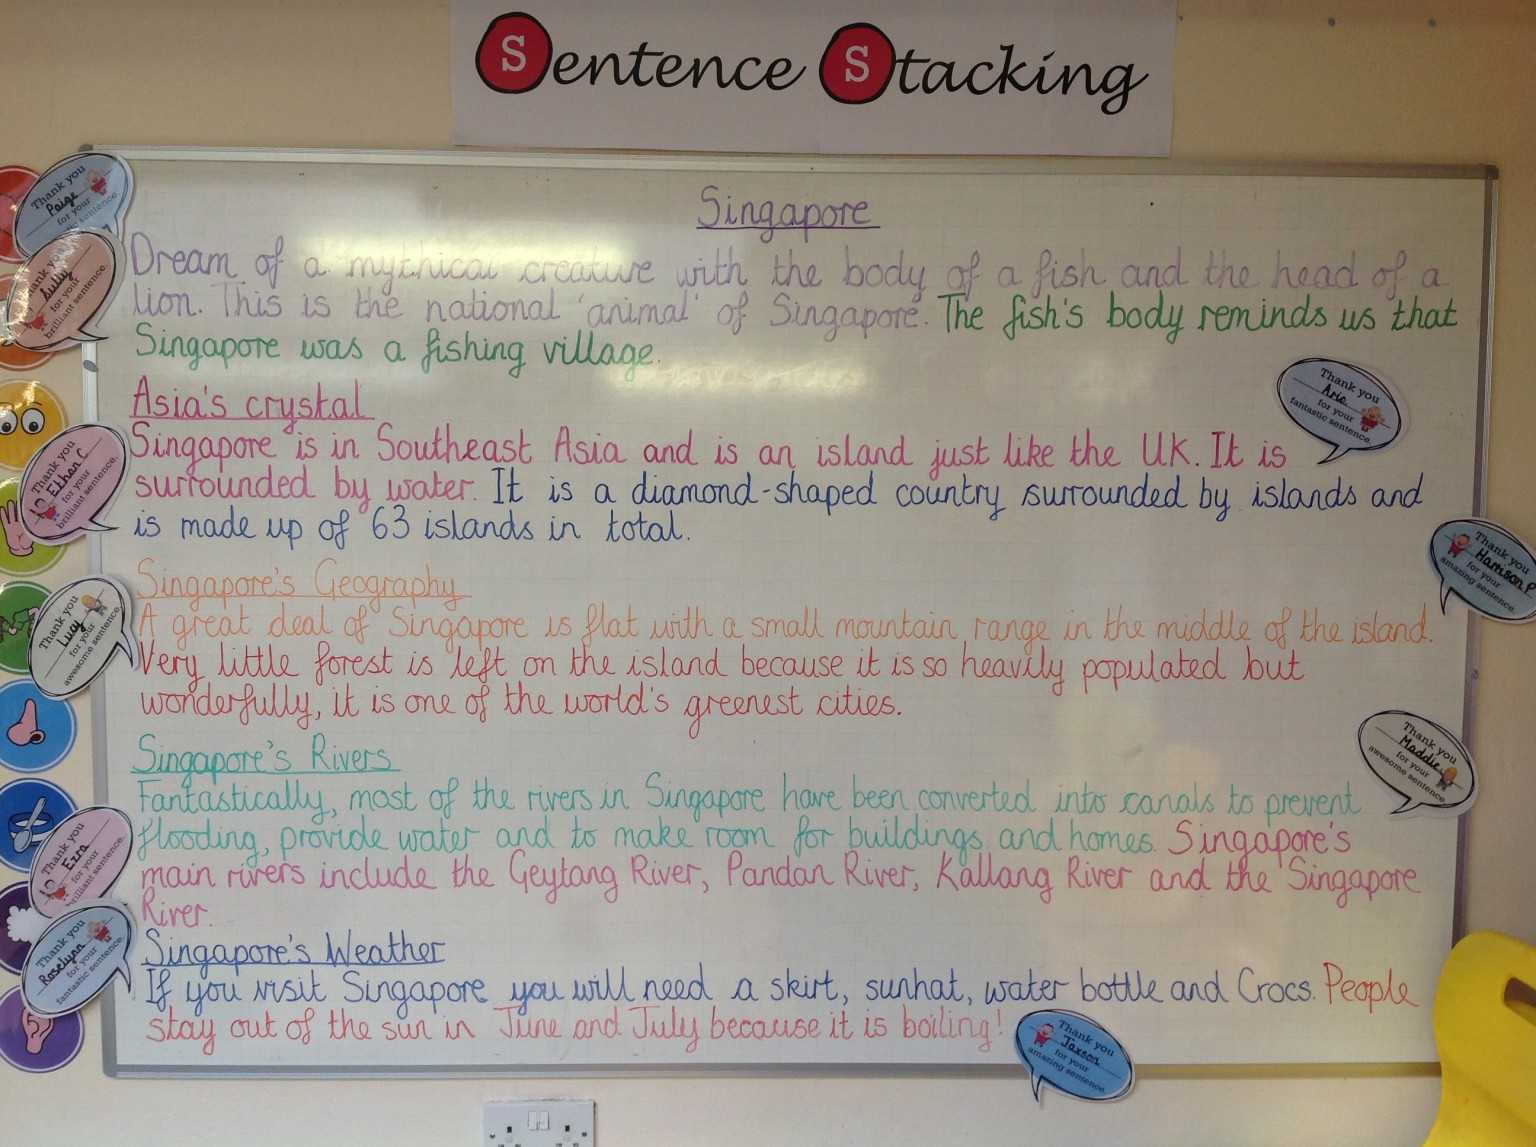 Sentence Stacking
Singapore
Dream of a mythical creature with the body of a fish and the head of a
lion. This is the national 'animal' of Singapore. The fish's body reminds us that
Singapore was a fishing village.
Asia's crystal
Singapore is in Southeast Asia and is an island just like the UK. It is
surrounded by water. It is a diamond-shaped country surrounded by islands and
is made up of 63 islands in total.
Singapore's Geography
A great deal of Singapore is flat with a small mountain range in the middle of the island.
Very little forest is left on the island because it is so heavily populated but
wonderfully, it is one of the world's greenest cities.
Singapore's Rivers
Fantastically, most of the rivers in Singapore have been converted into canals to prevent
flooding, provide water and to make room for buildings and homes. Singapore's
main rivers include the Geytang River, Pandan River, Kallang River and the Singapore
River.
Singapore's Weather
If you visit Singapore you will need a skirt, sunhat, water bottle and Crocs. People
stay out of the sun in June and July because it is boiling!
Thank you
Paige
for your
sentence.
Thank you
Sully
for your
brilliant sentence.
Thank you
Ethan C
for your
brilliant sentence.
Thank you
Lucy
for your
awesome sentence.
Thank you
Ezra
for your
brilliant sentence.
Thank you
Roselynn
for your
fantastic sentence.
Thank you
for your
fantastic sentence.
Thank you
Harrison P
for your
amazing sentence.
Thank you
Maddie
for your
awesome sentence.
Thank you
Jaxson
for your
amazing sentence.